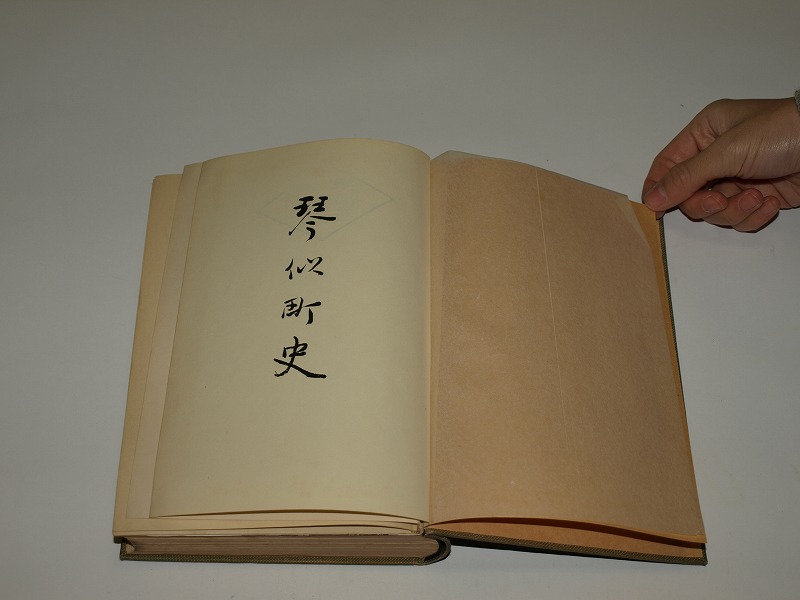 琴似町史